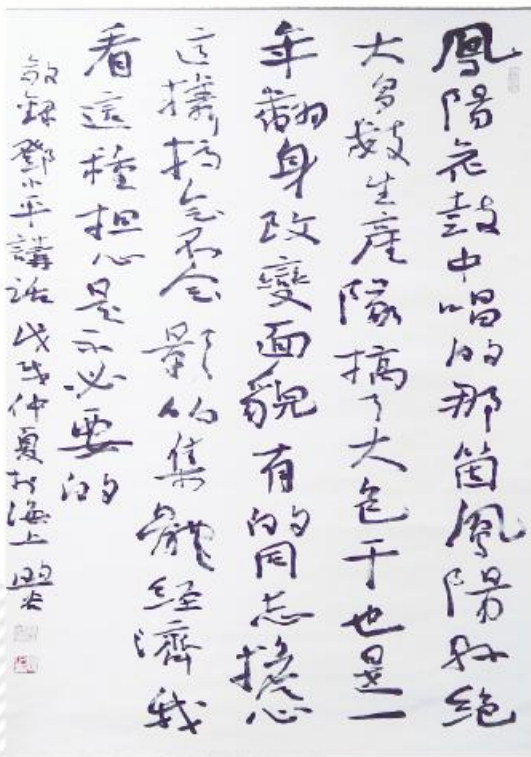 鳳陽花鼓中唱的那箇鳳陽县絕
大多數生產隊搞了大包干也是一
年翻身改變面貌有的同志擔心
這樣搞會不会影响集體經濟我
看這種担心是不必要的
敬錄鄧小平講話戊戌仲夏於海上